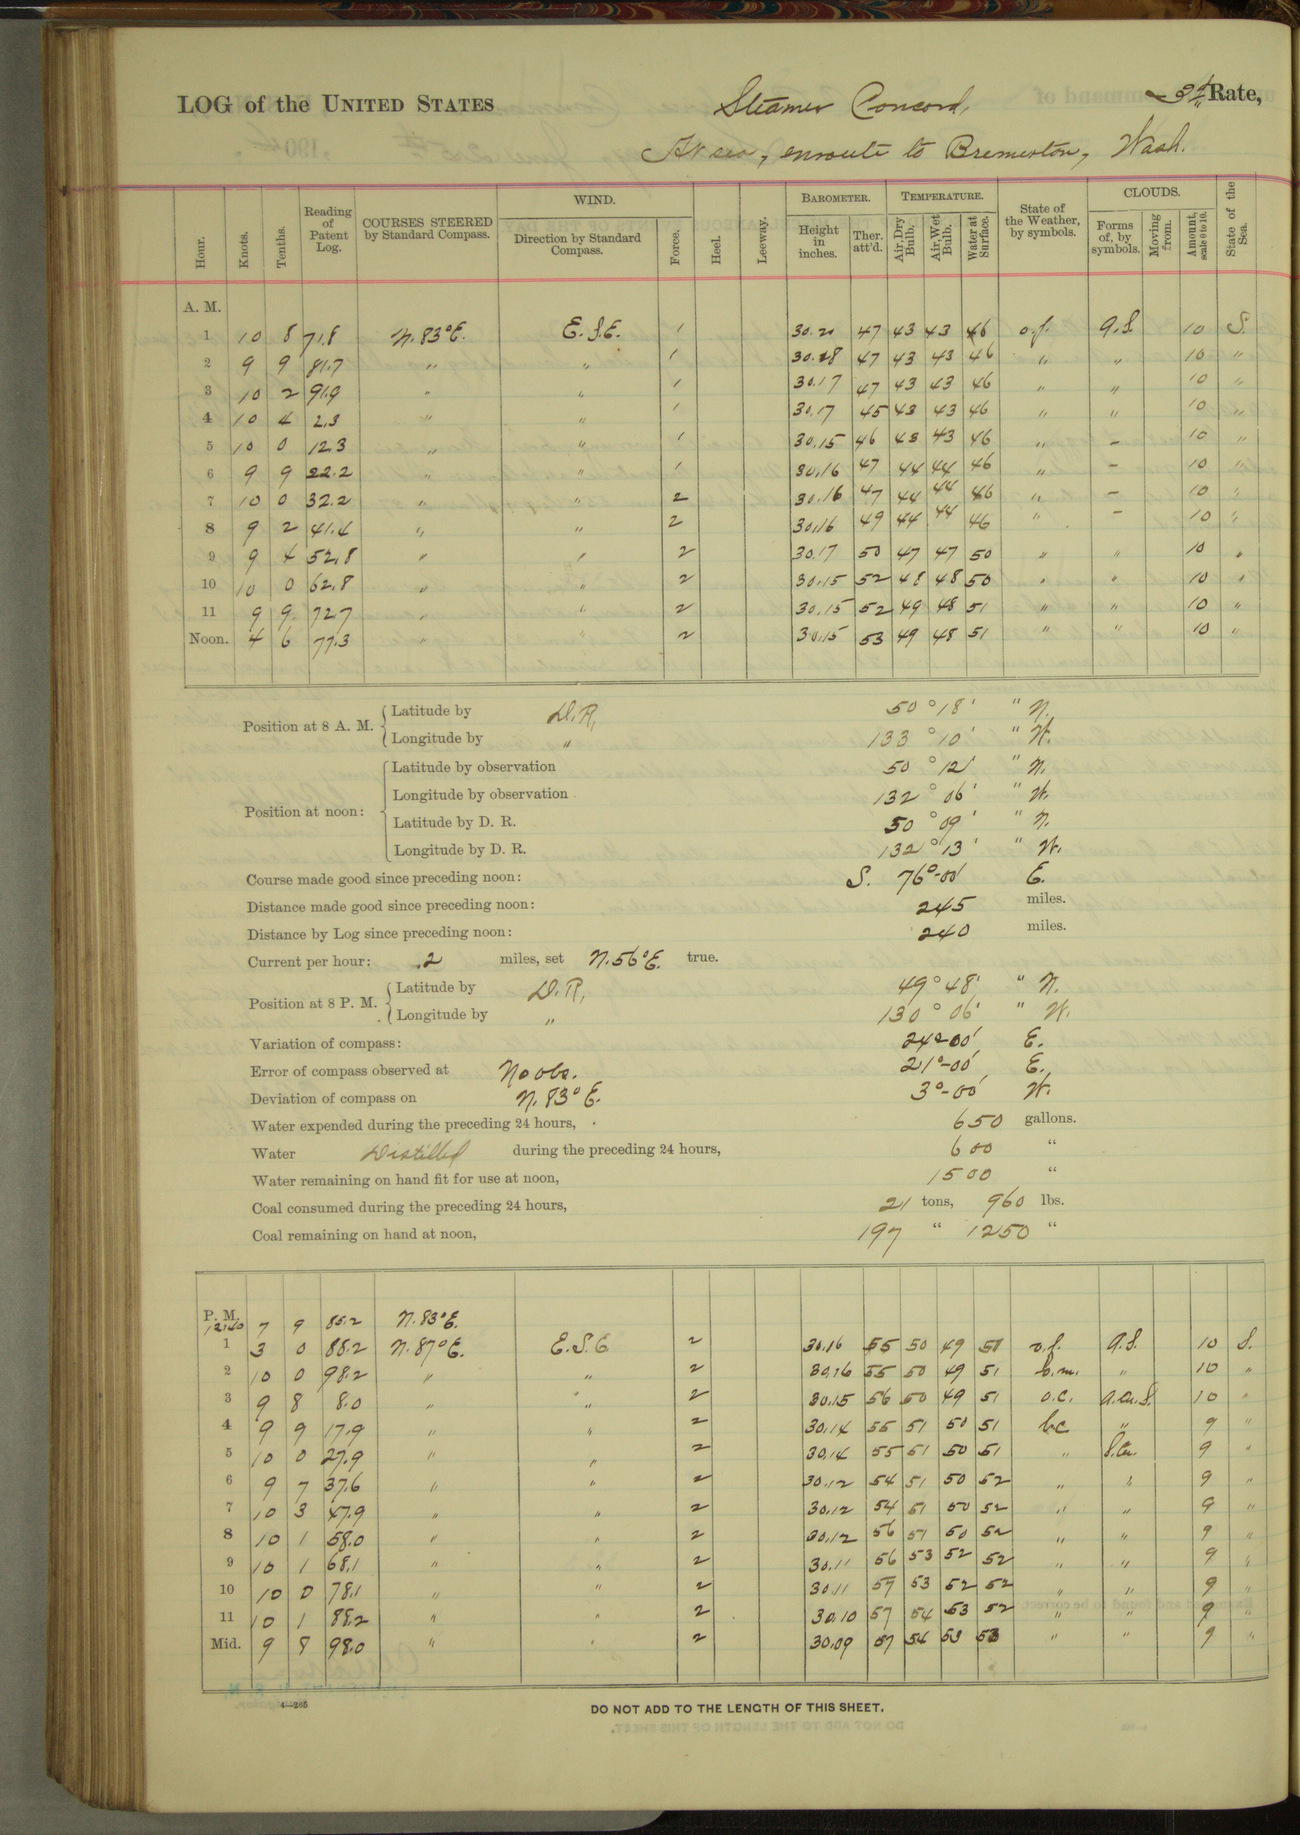 LOG of the UNITED STATES Steamer Concord, 3d Rate,
At sea, enroute to Bremerton, Wash.
Hour. Knots. Tenths. Reading of Patent Log. COURSES STEERED by Standard Compass. WIND. Direction by Standard Compass. Force. Heel. Leeway. BAROMETER. Height in inches. Ther. att'd. TEMPERATURE. Air, Dry Bulb. Air, Wet Bulb. Water at Surface. State of the Weather, by symbols. CLOUDS. Forms of, by symbols. Moving from. Amount, scale 0 to 10. State of the Sea.
A. M.
1 10 8 71.8 N. 83° E. E. S. E. 1 30.20 47 43 43 46 o.f. A.S. 10 S.
2 9 9 81.7 " " 1 30.18 47 43 43 46 " " 10 "
3 10 2 91.9 " " 1 30.17 47 43 43 46 " " 10 "
4 10 4 2.3 " " 1 30.17 45 43 43 46 " " 10 "
5 10 0 12.3 " " 1 30.15 46 43 43 46 " – 10 "
6 9 9 22.2 " " 1 30.16 47 44 44 46 " – 10 "
7 10 0 32.2 " " 2 30.16 47 44 44 46 " – 10 "
8 9 2 41.4 " " 2 30.16 49 44 44 46 " – 10 "
9 9 4 52.8 " " 2 30.17 50 47 47 50 " " 10 "
10 10 0 62.8 " " 2 30.15 52 48 48 50 " " 10 "
11 9 9 72.7 " " 2 30.15 52 49 48 51 " " 10 "
Noon. 4 6 77.3 " " 2 30.15 53 49 48 51 " " 10 "
Position at 8 A. M. Latitude by D.R. 50° 18' " N.
Longitude by " 133° 10' " W.
Position at noon: Latitude by observation 50° 12' " N.
Longitude by observation 132° 06' " W.
Latitude by D. R. 50° 09' " N.
Longitude by D. R. 132° 13' " W.
Course made good since preceding noon: S. 76°-00' E.
Distance made good since preceding noon: 245 miles.
Distance by Log since preceding noon: 240 miles.
Current per hour: .2 miles, set N. 56° E. true.
Position at 8 P. M. Latitude by D.R. 49° 48' " N.
Longitude by " 130° 06' " W.
Variation of compass: 24°-00' E.
Error of compass observed at No obs. 21°-00' E.
Deviation of compass on N. 83° E. 3°-00' W.
Water expended during the preceding 24 hours, 650 gallons.
Water Distilled during the preceding 24 hours, 600 "
Water remaining on hand fit for use at noon, 1500 "
Coal consumed during the preceding 24 hours, 21 tons, 960 lbs.
Coal remaining on hand at noon, 197 " 1250 "
P. M.
12:40 7 9 85.2 N. 83° E.
1 3 0 88.2 N. 87° E. E. S. E 2 30.16 55 50 49 51 o.f. A.S. 10 S.
2 10 0 98.2 " " 2 30.16 55 50 49 51 b.m. " 10 "
3 9 8 8.0 " " 2 30.15 56 50 49 51 o.c. A.Cu.S. 10 "
4 9 9 17.9 " " 2 30.14 55 51 50 51 bc " 9 "
5 10 0 27.9 " " 2 30.14 55 51 50 51 " S.Cu. 9 "
6 9 7 37.6 " " 2 30.12 54 51 50 52 " " 9 "
7 10 3 47.9 " " 2 30.12 54 51 50 52 " " 9 "
8 10 1 58.0 " " 2 30.12 56 51 50 52 " " 9 "
9 10 1 68.1 " " 2 30.11 56 53 52 52 " " 9 "
10 10 0 78.1 " " 2 30.11 57 53 52 52 " " 9 "
11 10 1 88.2 " " 2 30.10 57 54 53 52 " " 9 "
Mid. 9 8 98.0 " " 2 30.09 57 54 53 53 " " 9 "
4—265
DO NOT ADD TO THE LENGTH OF THIS SHEET.